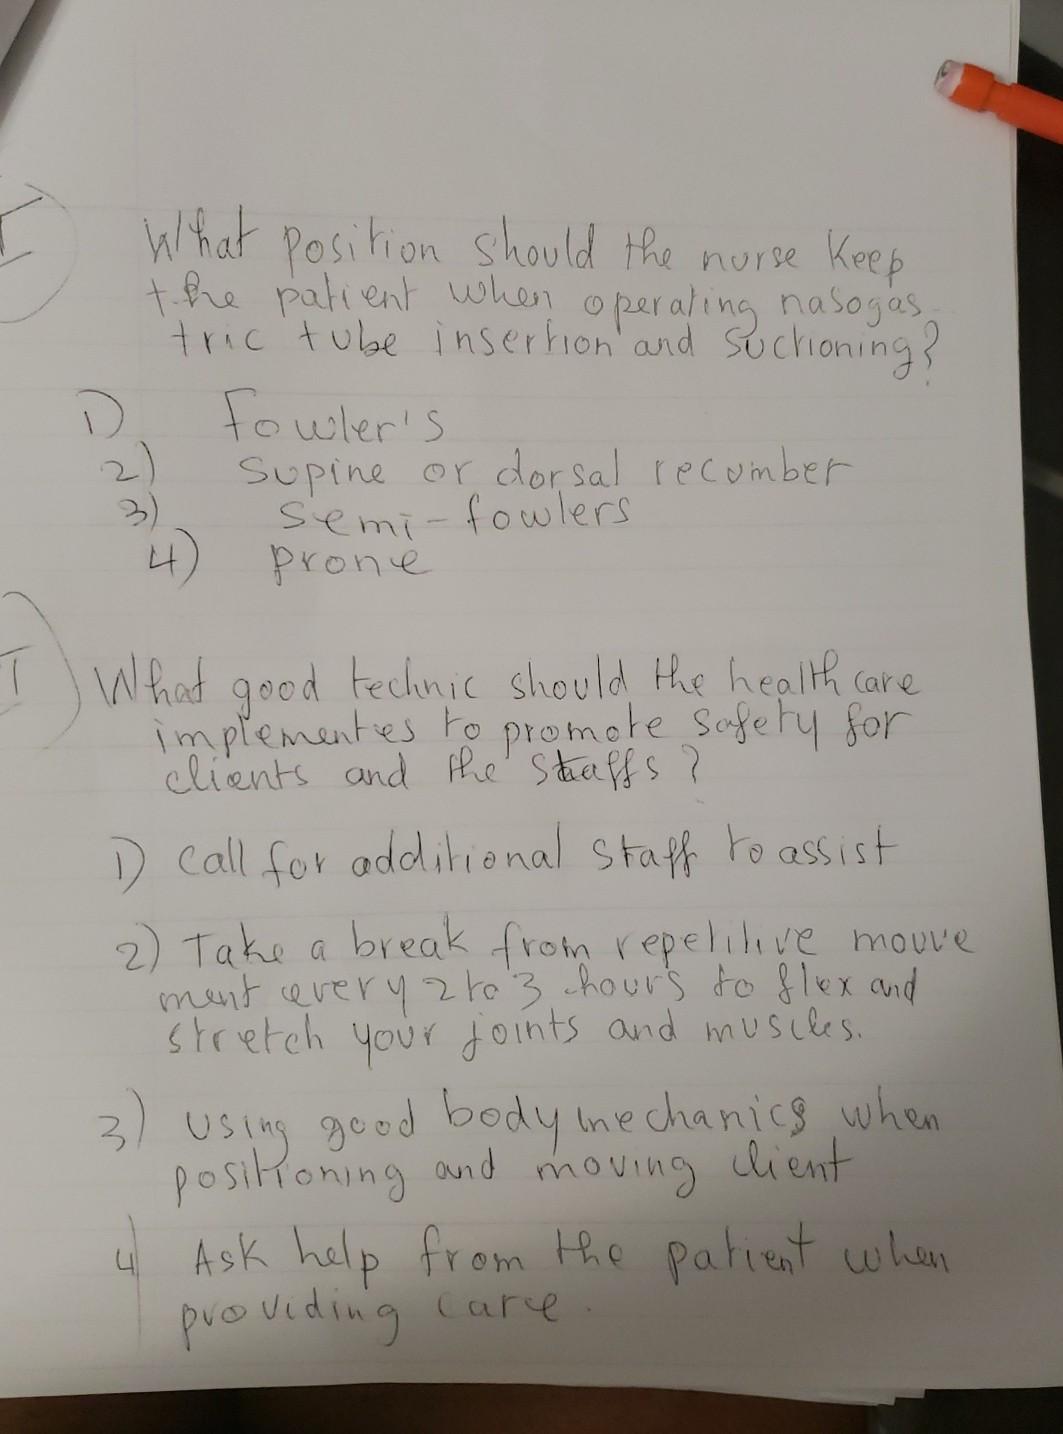 I
What position should the nurse keep
the patient when operating nasogas-
tric tube insertion and suctioning?
1) Fowler's
2) Supine or dorsal recumber
3) Semi-fowlers
4) prone
I
What good technic should the health care
implementes to promote safety for
clients and the staffs?
1) Call for additional staff to assist
2) Take a break from repetitive mouve
ment every 2 to 3 hours to flex and
stretch your joints and muscles.
3) Using good body mechanics when
positioning and moving client
4) Ask help from the patient when
providing care.